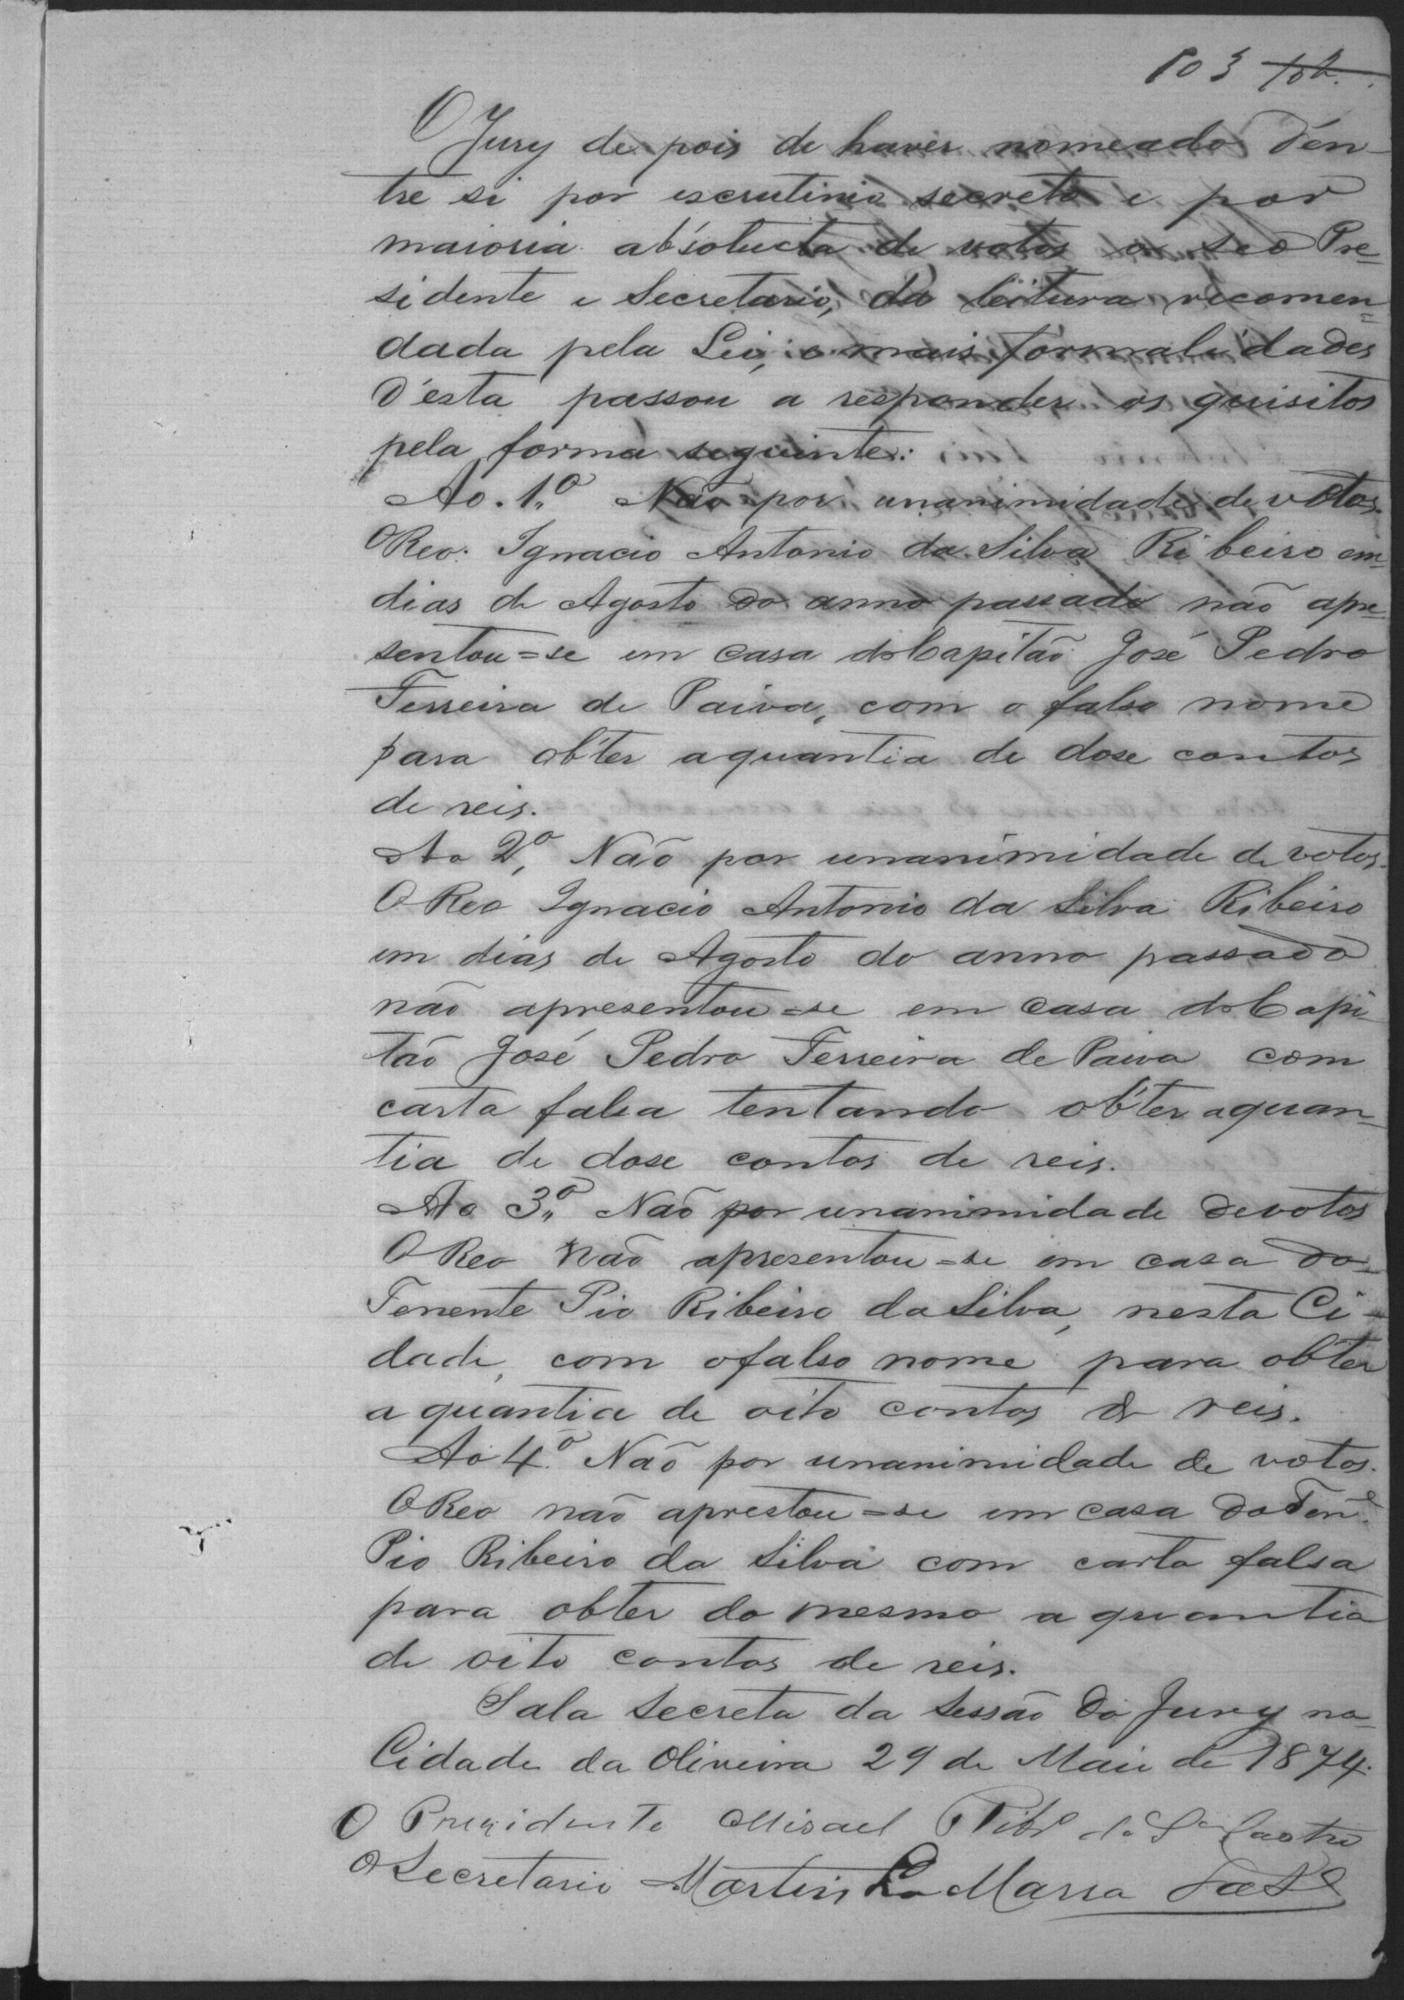 103
O Jury de pois de haver nomeado d'en-
tre si por escrutinio secreto e por
maioria absolucta de votos o seo Pre-
sidente e Secretario, da leitura recomen=
dada pela Lei, e mais formalidades
d'esta passou a responder os quisitos
pela forma seguinte:
Ao. 1.º Não por unanimidade de votos.
O Reo. Ignacio Antonio da Silva Ribeiro em
dias de Agosto do anno passado não apre-
sentou=se em casa do Capitão José Pedro
Ferreira de Paiva, com o falso nome
para obter a quantia de dose contos
de reis.
Ao 2º, Não por unanimidade de votos.
O Reo Ignacio Antonio da Silva Ribeiro
em dias de Agosto do anno passado
não apresentou=se em casa do Capi-
tão José Pedro Ferreira de Paiva com
carta falsa tentando obter a quan=
tia de dose contos de reis.
Ao 3.º Não por unanimidade de votos
O Reo não apresentou=se em casa do
Tenente Pio Ribeiro da Silva, nesta Ci-
dade, com o falso nome para obter
a quantia de oito contos de reis.
Ao 4.º Não por unanimidade de votos.
O Reo não aprestou=se em casa do Ten.e
Pio Ribeiro da Silva com carta falsa
para obter do mesmo a quantia
de oito contos de reis.
Sala Secreta da Sessão do Jury na
Cidade da Oliveira 29 de Maio de 1874.
O Prezidente Misael Ribr.o da S.a Castro
O Secretario Martin